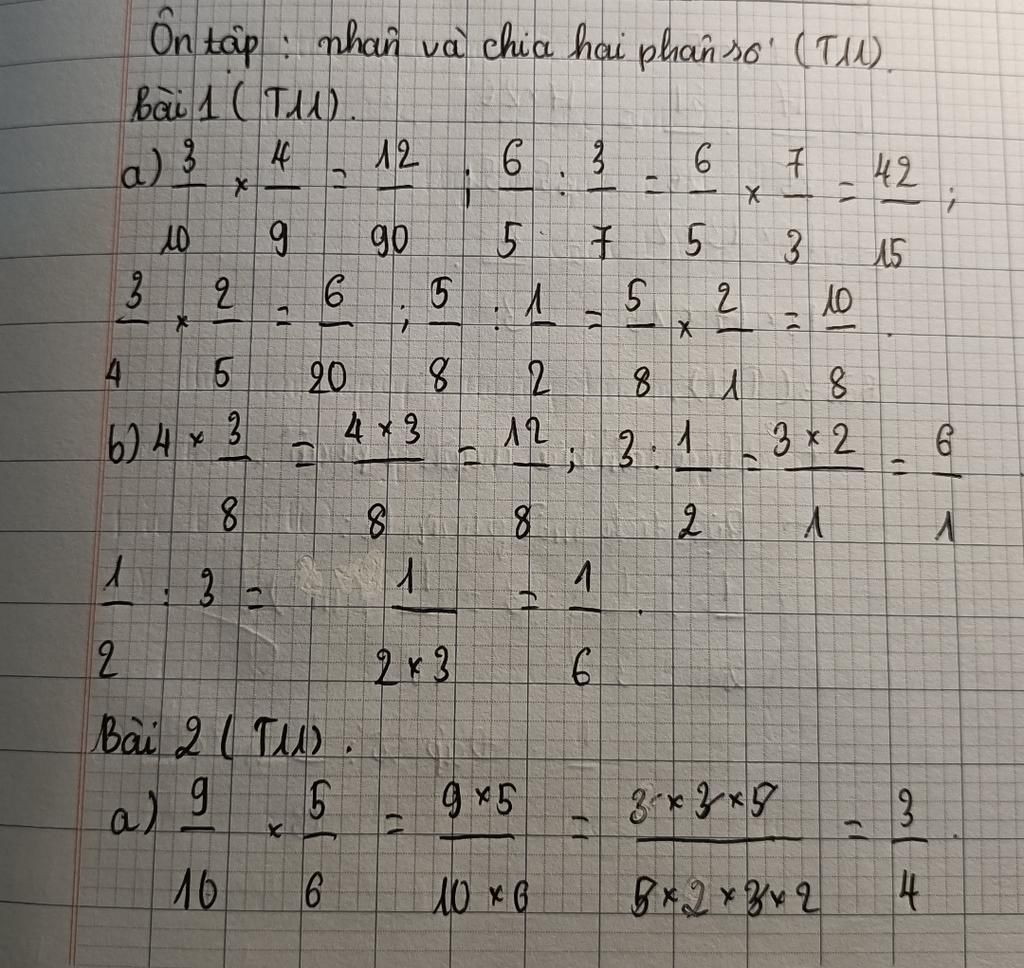 Ôn tập : nhân và chia hai phân số (T11).
Bài 1 (T11).
a) 3/10 × 4/9 = 12/90 ; 6/5 : 3/7 = 6/5 × 7/3 = 42/15 ;
3/4 × 2/5 = 6/20 ; 5/8 : 1/2 = 5/8 × 2/1 = 10/8 .
b) 4 × 3/8 = 4 × 3/8 = 12/8 ; 3 : 1/2 = 3 × 2/1 = 6/1
1/2 : 3 = 1/2 × 3 = 1/6 .
Bài 2 (T11) .
a) 9/10 × 5/6 = 9 × 5/10 × 6 = 3 × 3 × 5/5 × 2 × 3 × 2 = 3/4 .